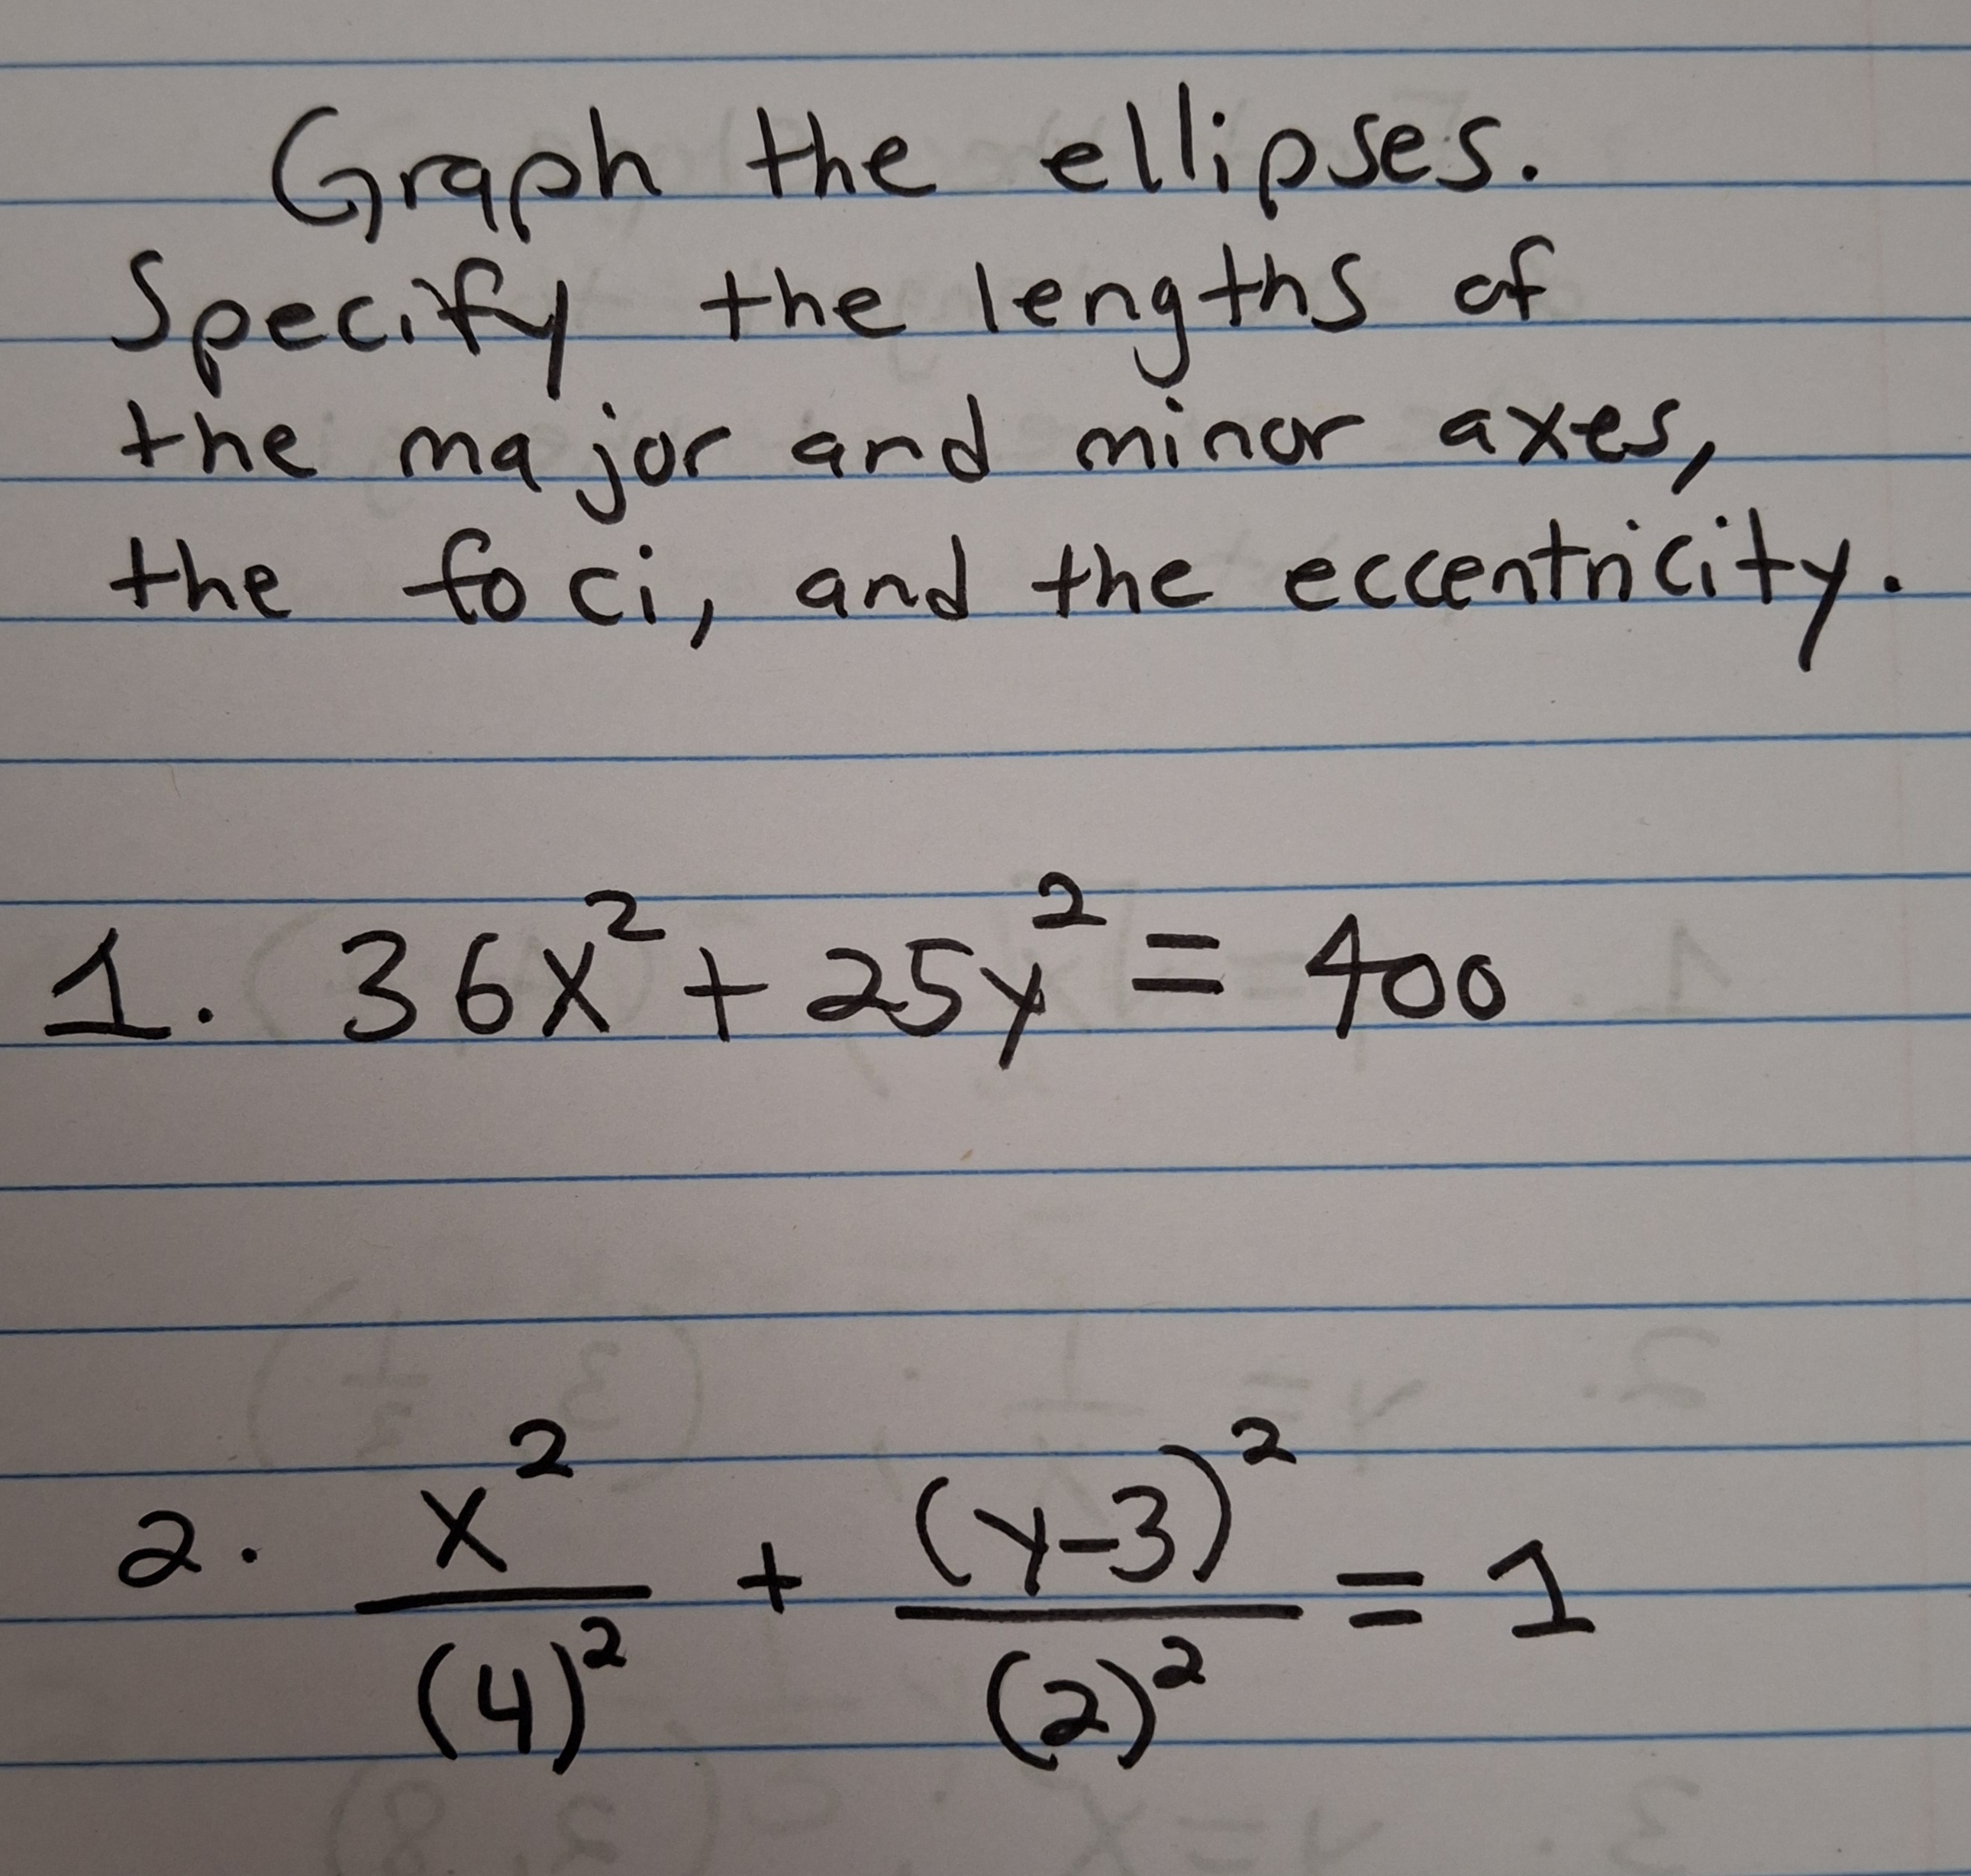 Graph the ellipses.
Specify the lengths of
the major and minor axes,
the foci, and the eccentricity.
1. 36x² + 25y² = 400
2. x²/(4)² + (y-3)²/(2)² = 1